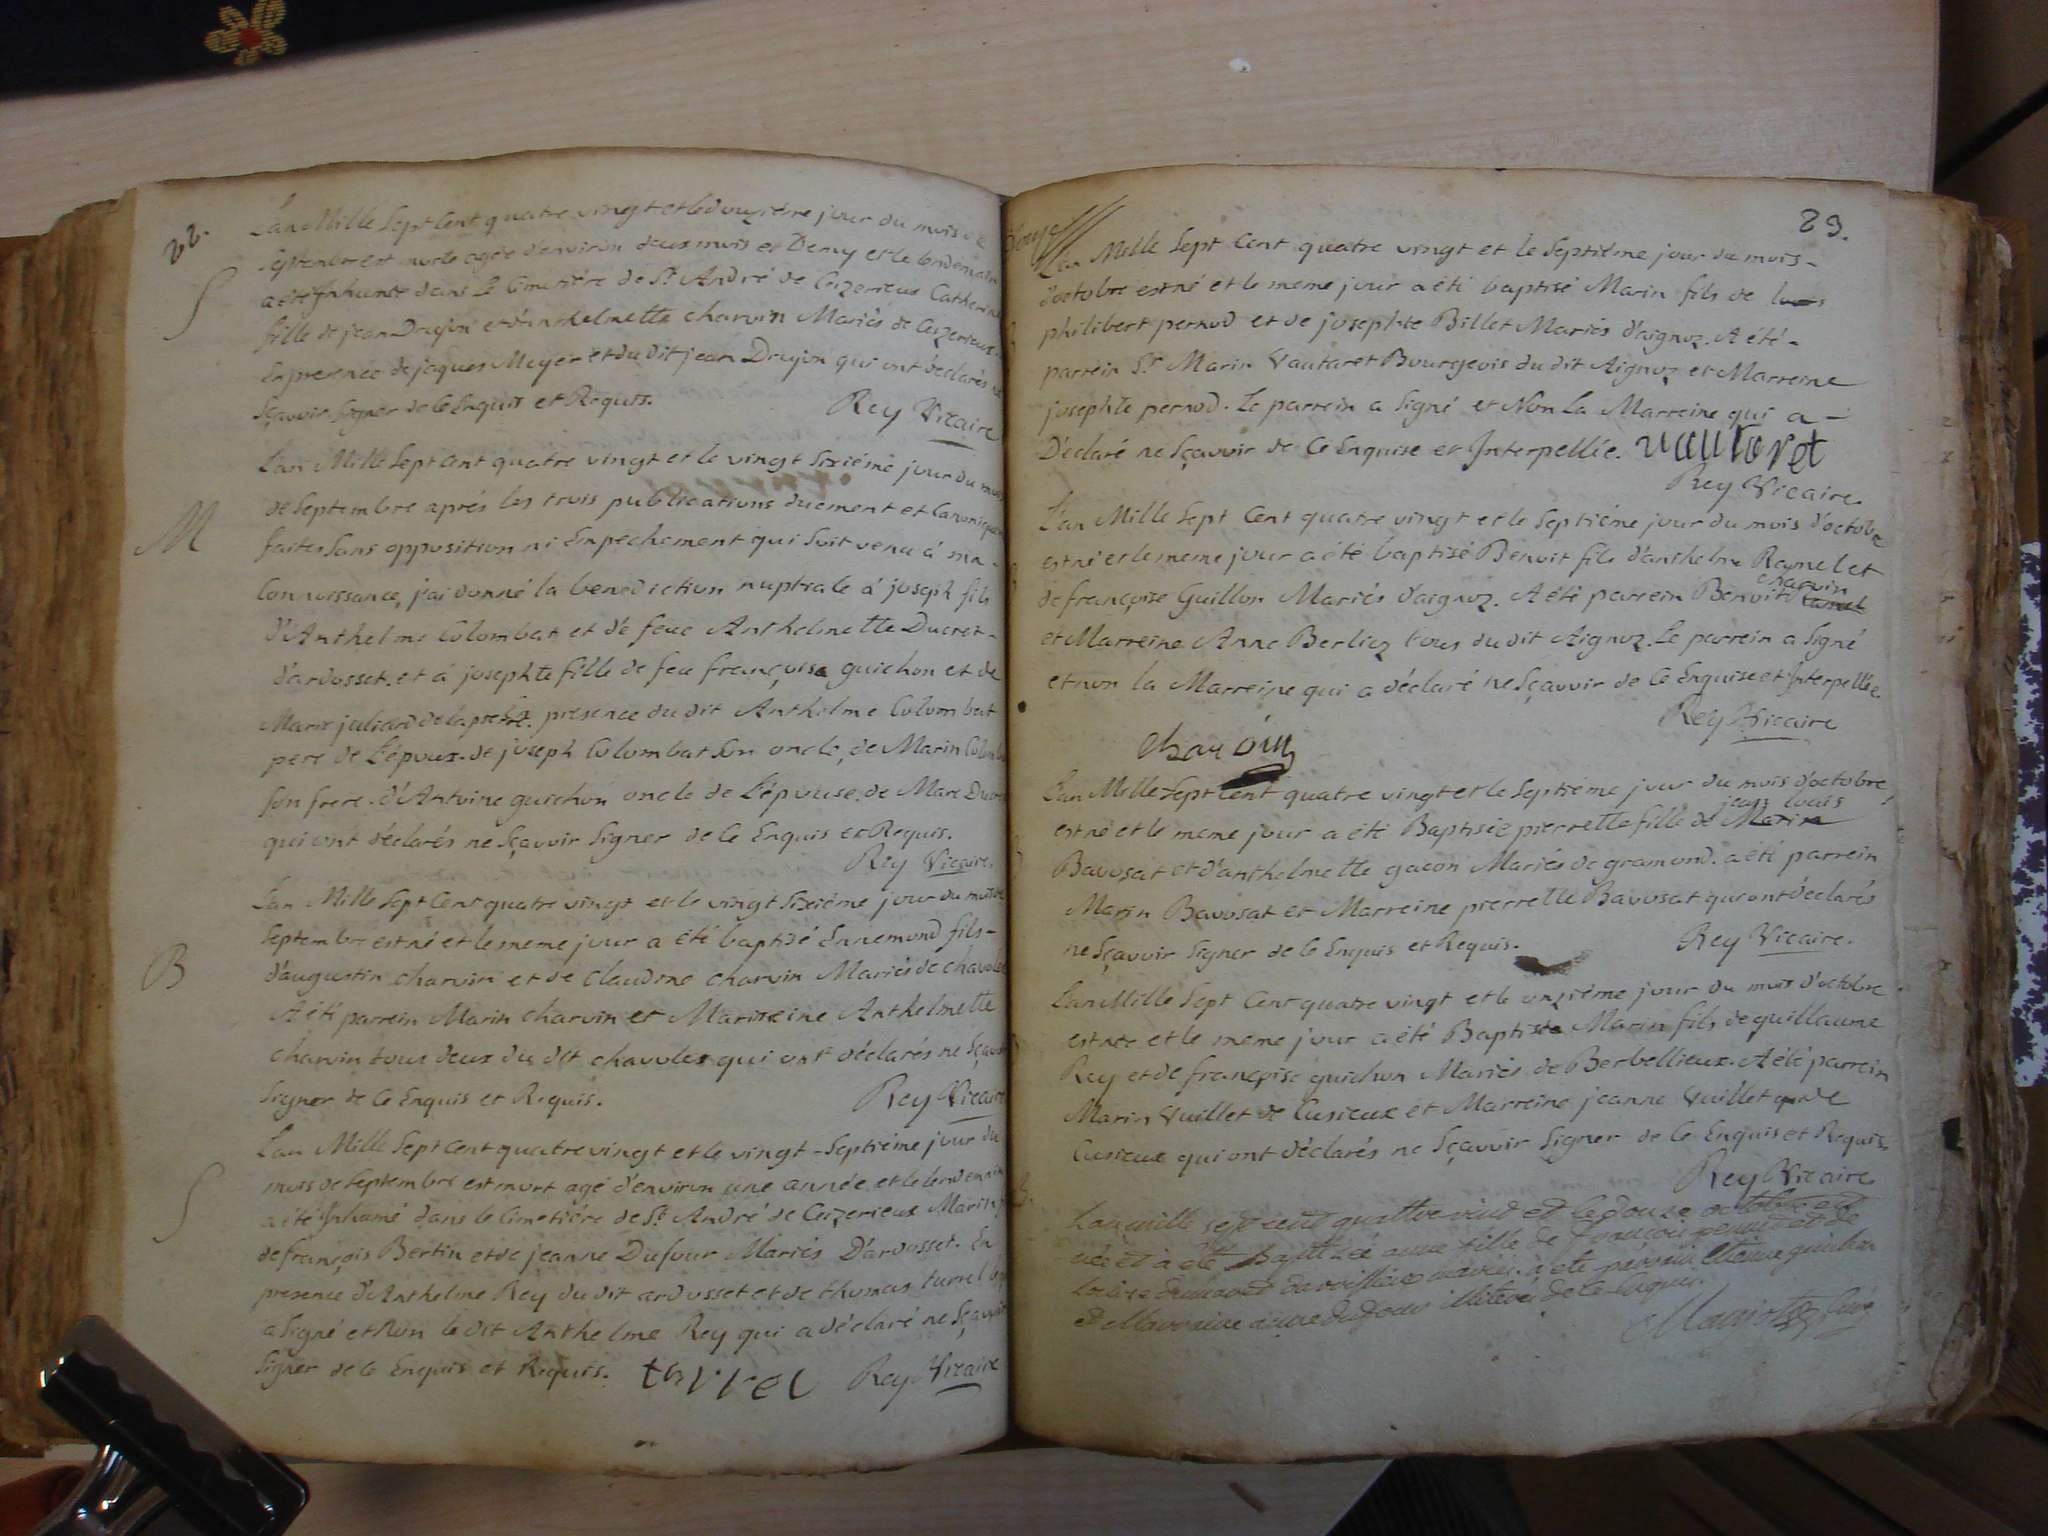 22.
L'an Mille Sept Cent quatre vingt et le douzième jour du mois de
Septembre est morte agée d'environ deux mois et Demy et le lendemain
a été Inhumée dans Le Cimetière de St André de Ceizerieux Catherine
fille de jean Drujon et d'anthelmette charvin Mariés de Ceizerieux.
En presence de jaques Meyer et du dit jean Drujon qui ont déclarés ne
Sçavoir Signer de Ce Enquis et Requis.
Rey Vicaire
S
L'an Mille Sept Cent quatre vingt et le vingt Sixiéme jour du mois
de Septembre aprés les trois publications duement et Canoniquement
faites Sans opposition ni Empechement qui Soit venu à ma -
Connoissance, j'ai donné la benediction nuptiale à joseph fils
d'Anthelme Colombat et de feue Anthelmette Ducret -
d'ardosset. et à josephte fille de feu françois guichon et de
Marie juliard de presence du dit Anthelme Colombat
pere de L'époux. de joseph Colombat Son oncle, de Marin Colombat
Son frere. d'Antoine guichon oncle de L'épouse. de Marc
qui ont déclarés ne Sçavoir Signer de Ce Enquis et Requis.
Rey Vicaire.
M
L'an Mille Sept Cent quatre vingt et le vingt Sixiéme jour du mois de
Septembre est né et le meme jour a été baptisé Ennemond fils -
d'augustin charvin et de claudine charvin Mariés de chavoley
A été parrein Marin charvin et Marreine Anthelmette
charvin tous deux du dit chavoley qui ont déclarés ne Sçavoir
Signer de Ce Enquis et Requis.
Rey Vicaire
B
L'an Mille Sept Cent quatre vingt et le vingt - Septiéme jour du
mois de Septembre est mort agé d'environ une année et le lendemain
a été Inhumé dans le Cimetière de St André de Ceizerieux Marin
de françois Bertin et de jeanne Dufour Mariés D'ardosset. En
presence d'Anthelme Rey du dit ardosset et de thomas turrel
a Signé et Non le dit Anthelme Rey qui a déclaré ne Sçavoir
Signer de Ce Enquis et Requis. turrel Rey Vicaire
S
23.
L'an Mille Sept Cent quatre vingt et le Septiéme jour du mois -
d'octobre est né et le meme jour a été baptisé Marin fils de
philibert pernod et de josephte Billet Mariés d'aignoz. A été -
parrein Sr Marin Vautaret Bourgeois du dit Aignoz et Marreine
josephte pernod. Le parrein a Signé et Non La Marreine qui a -
Déclaré ne Sçavoir de Ce Enquise et Interpellée. vautaret
Rey Vicaire.
L'an Mille Sept Cent quatre vingt et le Septiéme jour du mois d'octobre
est né et le meme jour a été baptisé Benoit fils d'anthelme Raynel et
de françoise Guillon Mariés d'aignoz. A été parrein Benoit charvin
et Marreine Anne Berlioz tous du dit Aignoz. Le parrein a Signé
et non la Marreine qui a déclaré ne Sçavoir de Ce Enquise et Interpellée
Rey Vicaire
Charvin
L'an Mille Sept Cent quatre vingt et le Septiéme jour du mois d'octobre,
est né et le meme jour a été Baptisée pierrette fille de Marin jean louis
Bavosat et d'anthelmette gacon Mariés de gramond. a été parrein
Marin Bavosat et Marreine pierrette Bavosat qui ont déclarés
ne Sçavoir Signer de Ce Enquis et Requis.
Rey Vicaire.
L'an Mille Sept Cent quatre vingt et le onziéme jour du mois d'octobre
est née et le meme jour a été Baptisée Marin fils de guillaume
Rey et de françoise guichon Mariés de Berbellieux. A été parrein
Marin Vuillet de Cusieux et Marreine jeanne Vuillet de
Cusieux qui ont déclarés ne Sçavoir Signer de Ce Enquis et Requis.
Rey Vicaire
L'an mille sept cent quattre vind et le douse octobre est
née et à été baptisée anne fille de françois et de
mariés. à été parrain Etiene guichon
et Marraine anne dufour illiteré de ce enquis.
Curé